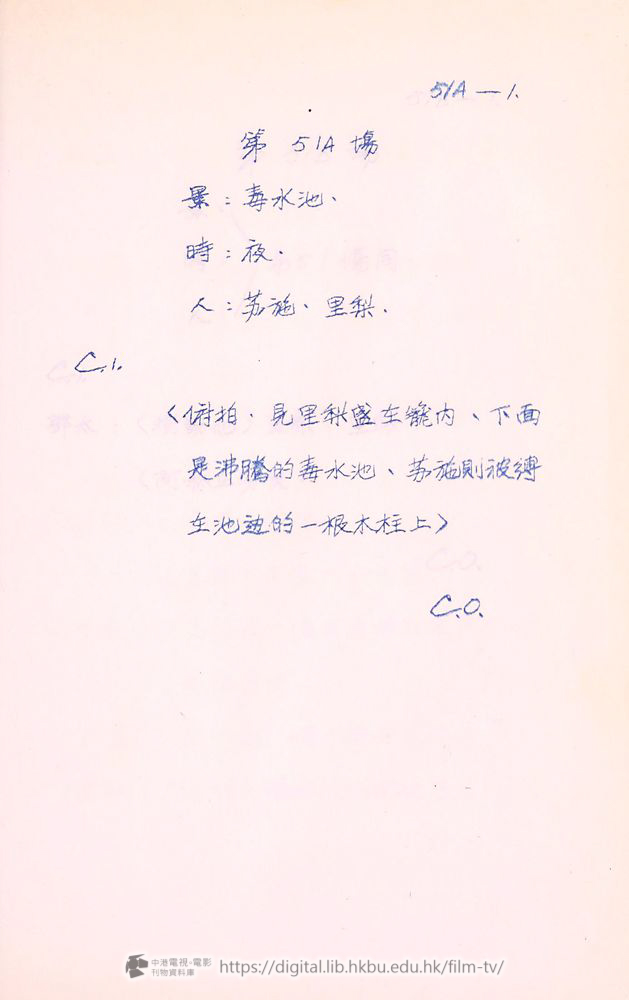 51A — 1.
第 51A 場
景：毒水池、
時：夜.
人：苏施、里梨.
C.I.
〈俯拍．見里梨盛在籠内、下面
是沸騰的毒水池、苏施則被縛
在池边的一根木柱上〉
C.O.
中港電視·電影
刊物資料庫
https://digital.lib.hkbu.edu.hk/film-tv/